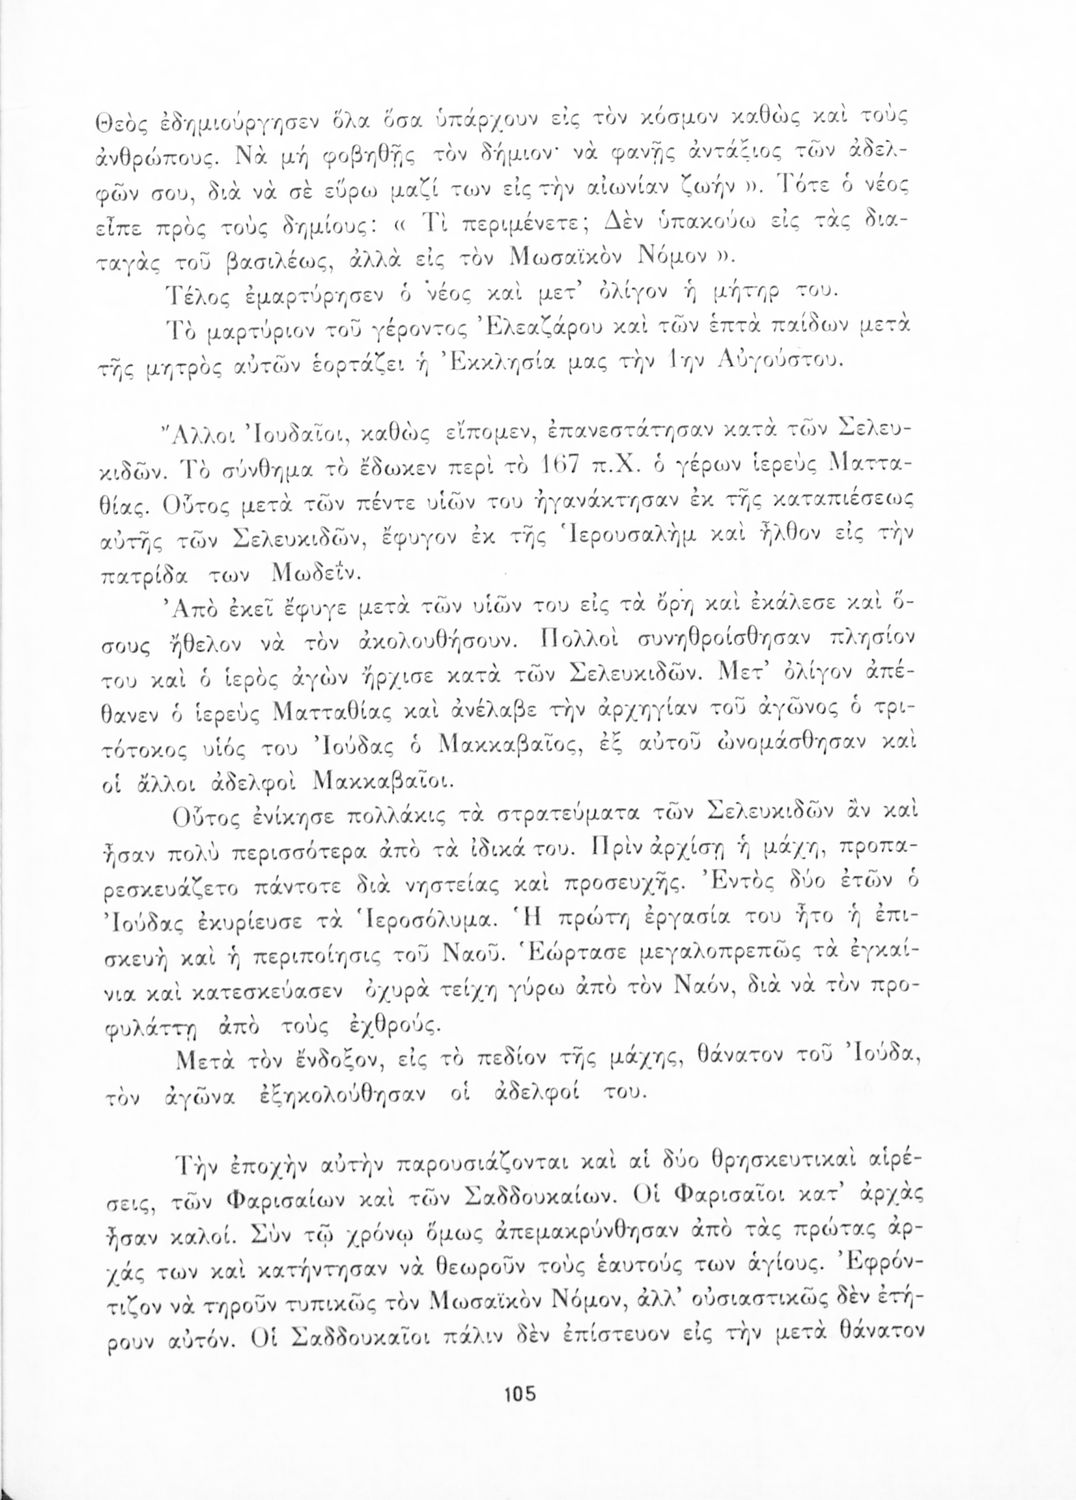 Θεὸς ἐδημιούργησεν ὅλα ὅσα ὑπάρχουν εἰς τὸν κόσμον καθὼς καὶ τοὺς
ἀνθρώπους. Νὰ μή φοβηθῇς τὸν δήμιον· νὰ φανῇς ἀντάξιος τῶν ἀδελ-
φῶν σου, διὰ νὰ σὲ εὕρω μαζί των εἰς τὴν αἰωνίαν ζωήν ». Τότε ὁ νέος
εἶπε πρὸς τοὺς δημίους: « Τὶ περιμένετε; Δὲν ὑπακούω εἰς τὰς δια-
ταγὰς τοῦ βασιλέως, ἀλλὰ εἰς τὸν Μωσαϊκὸν Νόμον ».
Τέλος ἐμαρτύρησεν ὁ νέος καὶ μετ’ ὀλίγον ἡ μήτηρ του.
Τὸ μαρτύριον τοῦ γέροντος Ἐλεαζάρου καὶ τῶν ἑπτὰ παίδων μετὰ
τῆς μητρὸς αὐτῶν ἑορτάζει ἡ Ἐκκλησία μας τὴν 1ην Αὐγούστου.
Ἄλλοι Ἰουδαῖοι, καθὼς εἴπομεν, ἐπανεστάτησαν κατὰ τῶν Σελευ-
κιδῶν. Τὸ σύνθημα τὸ ἔδωκεν περὶ τὸ 167 π.Χ. ὁ γέρων ἱερεὺς Ματτα-
θίας. Οὗτος μετὰ τῶν πέντε υἱῶν του ἠγανάκτησαν ἐκ τῆς καταπιέσεως
αὐτῆς τῶν Σελευκιδῶν, ἔφυγον ἐκ τῆς Ἱερουσαλὴμ καὶ ἦλθον εἰς τὴν
πατρίδα των Μωδεΐν.
Ἀπὸ ἐκεῖ ἔφυγε μετὰ τῶν υἱῶν του εἰς τὰ ὄρη καὶ ἐκάλεσε καὶ ὅ-
σους ἤθελον νὰ τὸν ἀκολουθήσουν. Πολλοὶ συνηθροίσθησαν πλησίον
του καὶ ὁ ἱερὸς ἀγὼν ἤρχισε κατὰ τῶν Σελευκιδῶν. Μετ’ ὀλίγον ἀπέ-
θανεν ὁ ἱερεὺς Ματταθίας καὶ ἀνέλαβε τὴν ἀρχηγίαν τοῦ ἀγῶνος ὁ τρι-
τότοκος υἱός του Ἰούδας ὁ Μακκαβαῖος, ἐξ αὐτοῦ ὠνομάσθησαν καὶ
οἱ ἄλλοι ἀδελφοὶ Μακκαβαῖοι.
Οὗτος ἐνίκησε πολλάκις τὰ στρατεύματα τῶν Σελευκιδῶν ἂν καὶ
ἦσαν πολὺ περισσότερα ἀπὸ τὰ ἰδικά του. Πρὶν ἀρχίσῃ ἡ μάχη, προπα-
ρεσκευάζετο πάντοτε διὰ νηστείας καὶ προσευχῆς. Ἐντὸς δύο ἐτῶν ὁ
Ἰούδας ἐκυρίευσε τὰ Ἱεροσόλυμα. Ἡ πρώτη ἐργασία του ἦτο ἡ ἐπι-
σκευὴ καὶ ἡ περιποίησις τοῦ Ναοῦ. Ἑώρτασε μεγαλοπρεπῶς τὰ ἐγκαί-
νια καὶ κατεσκεύασεν ὀχυρὰ τείχη γύρω ἀπὸ τὸν Ναόν, διὰ νὰ τὸν προ-
φυλάττῃ ἀπὸ τοὺς ἐχθρούς.
Μετὰ τὸν ἔνδοξον, εἰς τὸ πεδίον τῆς μάχης, θάνατον τοῦ Ἰούδα,
τὸν ἀγῶνα ἐξηκολούθησαν οἱ ἀδελφοί του.
Τὴν ἐποχὴν αὐτὴν παρουσιάζονται καὶ αἱ δύο θρησκευτικαὶ αἱρέ-
σεις, τῶν Φαρισαίων καὶ τῶν Σαδδουκαίων. Οἱ Φαρισαῖοι κατ’ ἀρχὰς
ἦσαν καλοί. Σὺν τῷ χρόνῳ ὅμως ἀπεμακρύνθησαν ἀπὸ τὰς πρώτας ἀρ-
χάς των καὶ κατήντησαν νὰ θεωροῦν τοὺς ἑαυτούς των ἁγίους. Ἐφρόν-
τιζον νὰ τηροῦν τυπικῶς τὸν Μωσαϊκὸν Νόμον, ἀλλ’ οὐσιαστικῶς δὲν ἐτή-
ρουν αὐτόν. Οἱ Σαδδουκαῖοι πάλιν δὲν ἐπίστευον εἰς τὴν μετὰ θάνατον
105